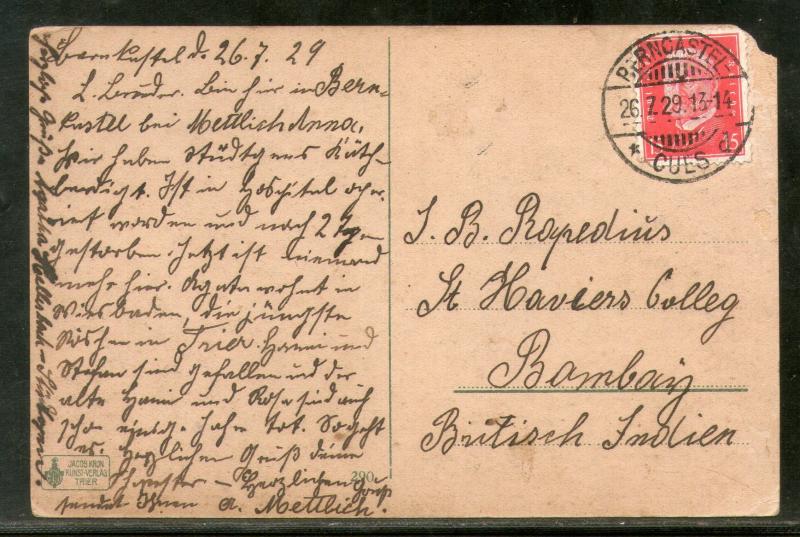 Bernkastel d. 26.7.29
L. Bruder. Bin hier in Bern-
kastel bei Mettlich Anna,
Wir haben Städtgens Käth
beerdigt. Ist in Hospital oper-
iert worden und nach 2 Tgen
gestorben. Jetzt ist niemand
mehr hier. Agata wohnt in
Wiesbaden, die jüngste
Röschen in Trier. Hanni und
Stefan sind gefallen und der
alte Hanni und Rosa sind auch
schon einige Jahre tot. So geht
es. Herzlichen Gruß deine
Schwester – Herzlichen Gruß
sendet Ihnen A. Mettlich.
Grüße
JACOB KRON
KUNST-VERLAG
TRIER
290
BERNCASTEL
26.7.29.13-14
* CUES d
15
J. B. Rapedius
St Haviers Colleg
Bombay
Britisch Indien